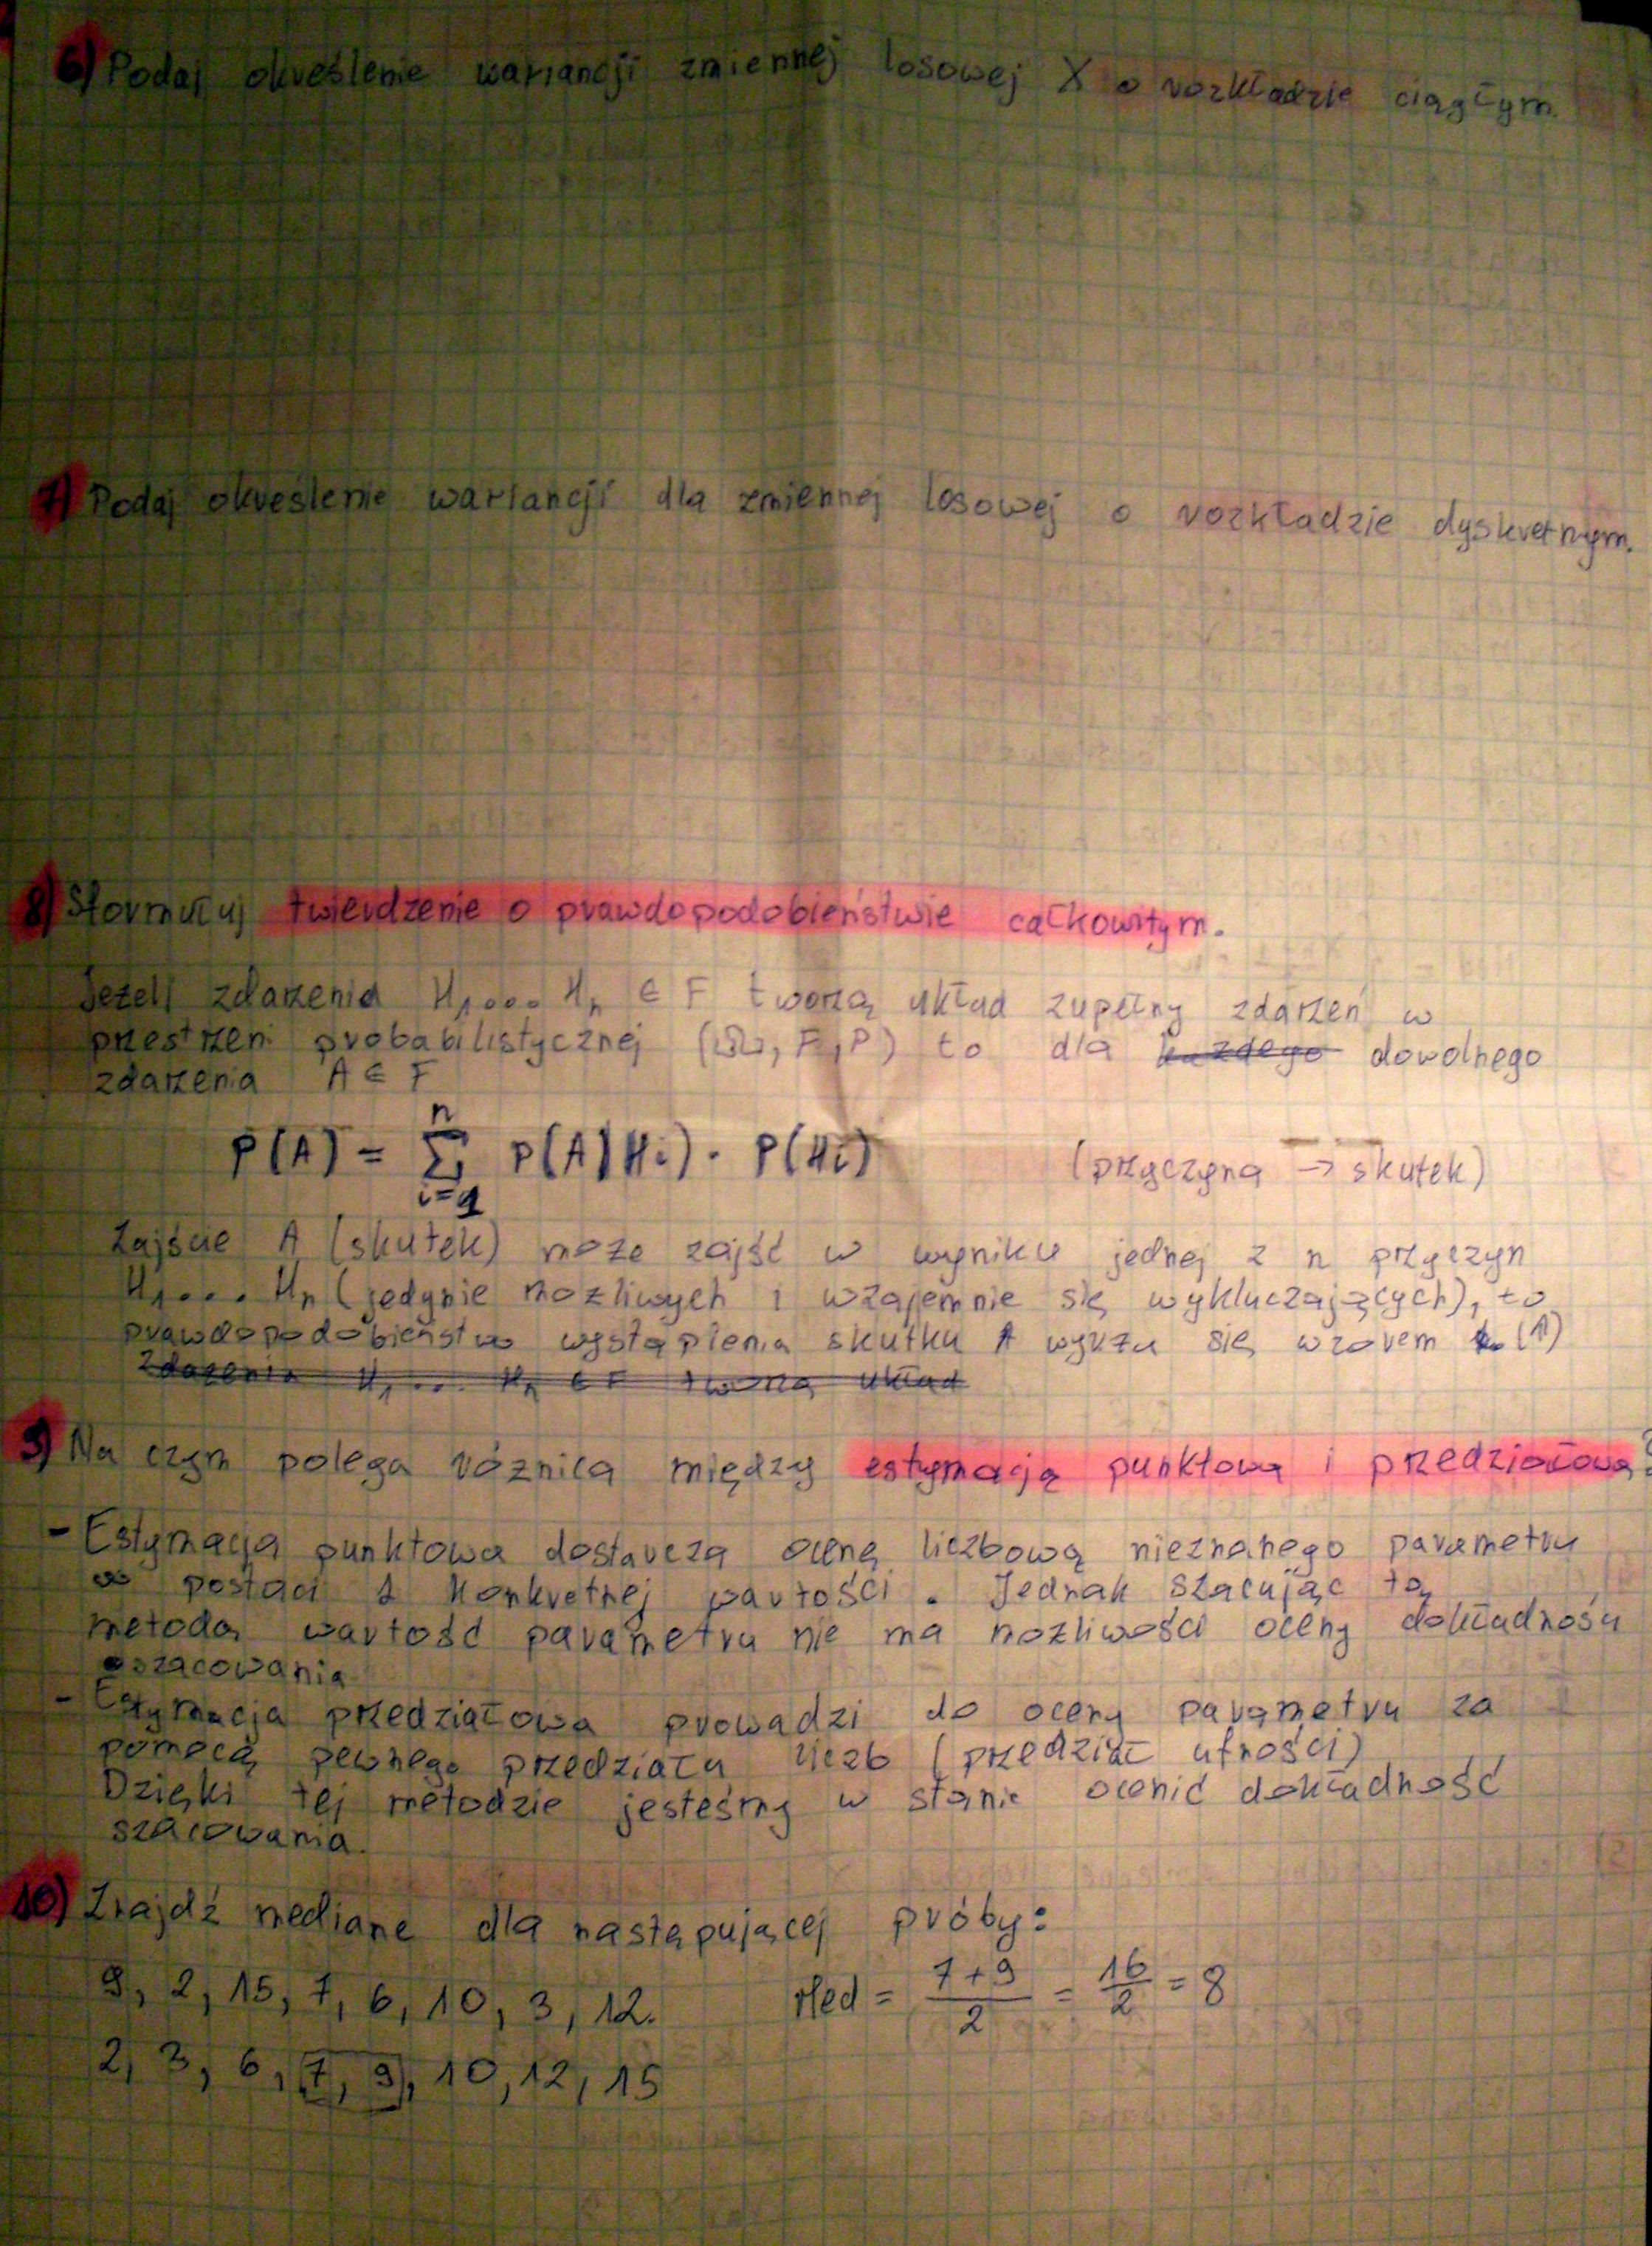 6) Podaj określenie wariancji zmiennej losowej X o rozkładzie ciągłym.
7) Podaj określenie wariancji dla zmiennej losowej o rozkładzie dyskretnym.
8) Sformułuj twierdzenie o prawdopodobieństwie całkowitym.
Jeżeli zdarzenia H1,... Hn ∈ F tworzą układ zupełny zdarzeń w
przestrzeni probabilistycznej (Ω, F, P) to dla każdego dowolnego
zdarzenia A ∈ F
P(A) = Σ_{i=1}^{n} P(A|Hi) · P(Hi) (przyczyna → skutek)
Zajście A (skutek) może zajść w wyniku jednej z n przyczyn
H1,... Hn (jedynie możliwych i wzajemnie się wykluczających), to
prawdopodobieństwo wystąpienia skutku A wyraża się wzorem (1)
zdarzenia H1,... Hn ∈ F tworzą układ
9) Na czym polega różnica między estymacją punktową i przedziałową?
- Estymacja punktowa dostarcza ocenę liczbową nieznanego parametru
w postaci 1 konkretnej wartości. Jednak szacując tą
metodą wartość parametru nie ma możliwości oceny dokładności
oszacowania
- Estymacja przedziałowa prowadzi do oceny parametru za
pomocą pewnego przedziału liczb (przedział ufności)
Dzięki tej metodzie jesteśmy w stanie ocenić dokładność
szacowania.
10) Znajdź medianę dla następującej próby:
9, 2, 15, 7, 6, 10, 3, 12. Med = (7+9)/2 = 16/2 = 8
2, 3, 6, 7, 9, 10, 12, 15